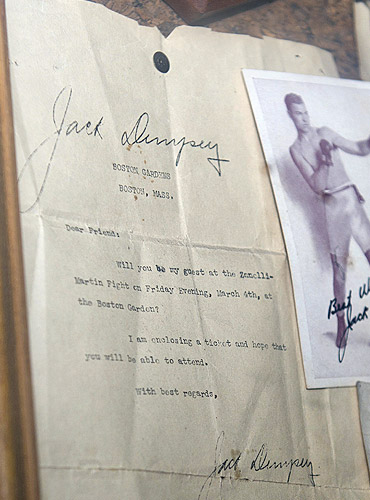 Jack Dempsey
BOSTON GARDENS
BOSTON, MASS.
Dear Friend:
Will you be my guest at the Zanelli-
Martin Fight on Friday Evening, March 4th, at
the Boston Garden?
I am enclosing a ticket and hope that
you will be able to attend.
With best regards,
Jack Dempsey
Best
Jack